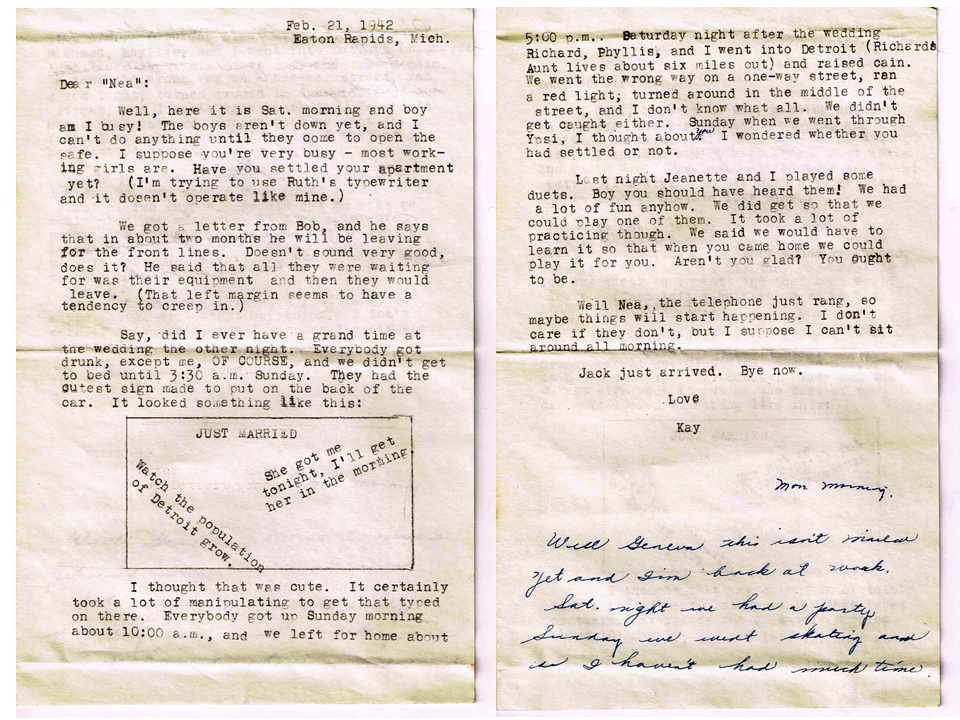 Feb. 21, 1942
Eaton Rapids, Mich.
Dear "Nea":
Well, here it is Sat. morning and boy
am I busy! The boys aren't down yet, and I
can't do anything until they come to open the
safe. I suppose you're very busy - most work-
ing girls are. Have you settled your apartment
yet? (I'm trying to use Ruth's typewriter
and it dosen't operate like mine.)
We got a letter from Bob, and he says
that in about two months he will be leaving
for the front lines. Doesn't sound very good,
does it? He said that all they were waiting
for was their equipment and then they would
leave. (That left margin seems to have a
tendency to creep in.)
Say, did I ever have a grand time at
the wedding the other night. Everybody got
drunk, except me, OF COURSE, and we didn't get
to bed until 3:30 a.m. Sunday. They had the
cutest sign made to put on the back of the
car. It looked something like this:
JUST MARRIED
Watch the population
of Detroit grow.
She got me
tonight, I'll get
her in the morning.
I thought that was cute. It certainly
took a lot of manipulating to get that typed
on there. Everybody got up Sunday morning
about 10:00 a.m., and we left for home about
5:00 p.m.. Saturday night after the wedding
Richard, Phyllis, and I went into Detroit (Richards
Aunt lives about six miles out) and raised cain.
We went the wrong way on a one-way street, ran
a red light; turned around in the middle of the
street, and I don't know what all. We didn't
get caught either. Sunday when we went through
Ypsi, I thought about you I wondered whether you
had settled or not.
Last night Jeanette and I played some
duets. Boy you should have heard them! We had
a lot of fun anyhow. We did get so that we
could play one of them. It took a lot of
practicing though. We said we would have to
learn it so that when you came home we could
play it for you. Aren't you glad? You ought
to be.
Well Nea, the telephone just rang, so
maybe things will start happening. I don't
care if they don't, but I suppose I can't sit
around all morning.
Jack just arrived. Bye now.
Love
Kay
Mon. morning.
Well Geneva this isn't mailed
yet and I'm back at work.
Sat. night we had a party
Sunday we went skating and
so I haven't had much time.